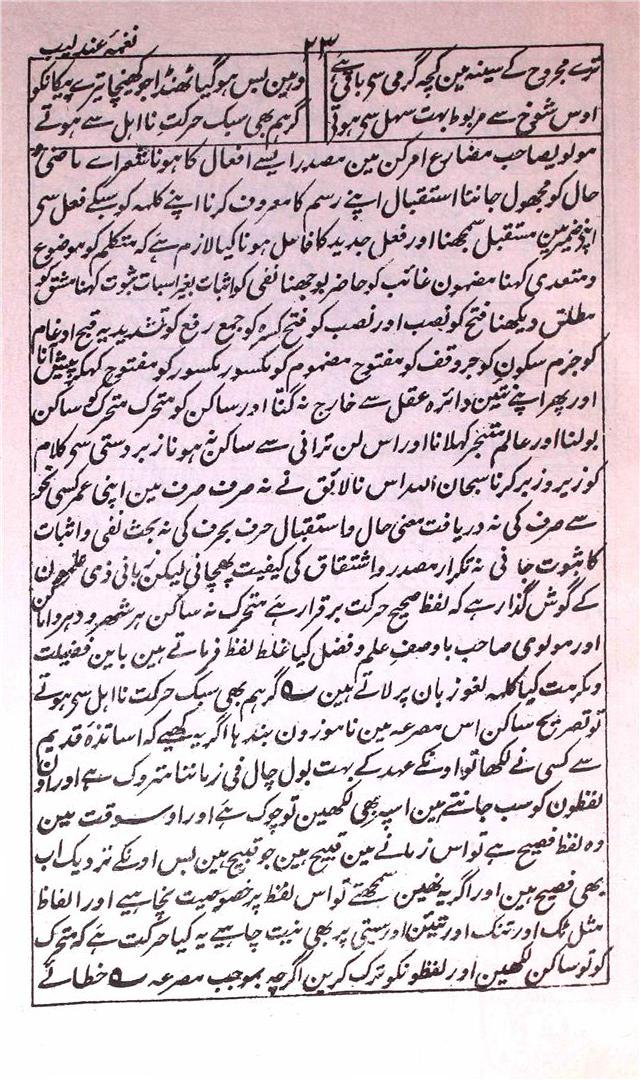 نغمۂ عندلیب
۲۳
ترے مجروح کے سینہ مین کچھ گرمی سی باقی ہے
وہین بس ہوگیا ٹھنڈا جو کھینچا تیرے پیکانکو
اوس شوخ سے مربوط بہت سہل سی ہوتی
گر ہم بھی سبک حرکت نااہل سے ہوتے
مولویصاحب مضارع امر کن مین مصدر ایسے افعال کا ہونا شعر اے ماضی
حال کو مجھول جاننا استقبال اپنے رسم کا معروف کرنا اپنے کلمہ کو سبکے فعل سی
اپنی ضمیر مین مستقبل سمجھنا اور فعل جدید کا فاعل ہونا کیا لازم ہے کہ متکلم کو موضوع
و متعدی کہنا مضمون غائب کو حاضر بوجھنا نفی کو اثبات بغیر اسبات ثبوت کہنا مشتق کو
مطلق دیکھنا فتح کو نصب اور نصب کو فتح کسرہ کو جمع رفع کو تشدید یہ قبیح ادغام
کو جزم سکون کو جر وقف کو مفتوح مضموم کو مکسور مکسور کو مفتوح کہکر پیش آنا
اور پھر اپنے تئین دائرہ عقل سے خارج نہ گننا اور ساکن کو متحرک متحرک کو ساکن
بولنا اور عالم متبحر کہلانا اور اس لن ترانی سے ساکن نہ ہونا زبردستی سی کلام
کو زیر و زبر کرنا سبحان اللہ اس نالائق نے نہ صرف صرف مین اپنی عمر کسی نحو
سے صرف کی نہ دریافت معنی حال و استقبال حرف بحرف کی نہ بحث نفی و اثبات
کا ثبوت جانی نہ تکرار مصدر و اشتقاق کی کیفیت پہچانی لیکن زبانی ذی علمون
کے گوش گذار ہے کہ لفظ صحیح حرکت برقرار ہے متحرک نہ ساکن ہر شہر و دہر و اما
اور مولوی صاحب باوصف علم و فضل کیا غلط لفظ فرماتے ہین باین فضیلت
و مکرمت کیا کلمہ لغو زبان پر لاتے ہین ؎ گر ہم بھی سبک حرکت نااہل سی ہوتے
تو تصریح ساکن اس مصرعہ مین ناموزون بندہا اگر یہ کہیے کہ اساتذۂ قدیم
سے کسی نے لکھا تو اونکے عہد کے بہت بول چال فی زماننا متروک ہے اور اون
لفظون کو سب جانتے مین اسپہ بھی لکھین تو چوک ہے اور اوسوقت مین
وہ لفظ فصیح ہے تو اس زمانے مین قبیح ہین جو قبیح ہین بس اونکے نزدیک اب
بھی فصیح ہین اور اگر یہ نھین سمجھتے تو اس لفظ پر خصوصیت نچاہیے اور الفاظ
مثل ٹک اور تنک اور تئین اور سیتی پر بھی نیت چاہیے یہ کیا حرکت ہے کہ متحرک
کو تو ساکن لکھین اور لفظونکو ترک کرین اگرچہ بموجب مصرعہ ؎ خطائے